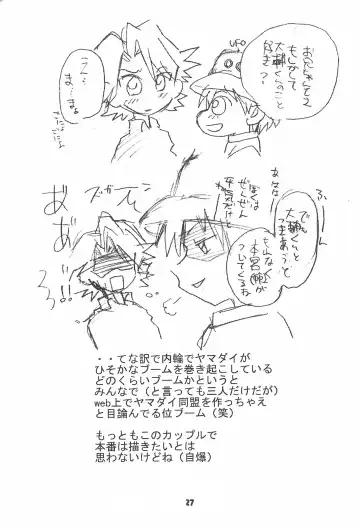 お兄ちゃんって
もしかして
大輔くんのこと
好き？
UFO
え…
ま…まぁ。
ふーん
でも
大輔くんと
つきあうと
もれなく
本宮 姉が
ついてくるよ
ぼくは
ぜんぜん
平気だけど
ね
ズガーン
おおお
・・てな訳で内輪でヤマダイが
ひそかなブームを巻き起こしている
どのくらいブームかというと
みんなで（と言っても三人だけだが）
web上でヤマダイ同盟を作っちゃえ
と目論んでる位ブーム（笑）
もっともこのカップルで
本番は描きたいとは
思わないけどね（自爆）
27